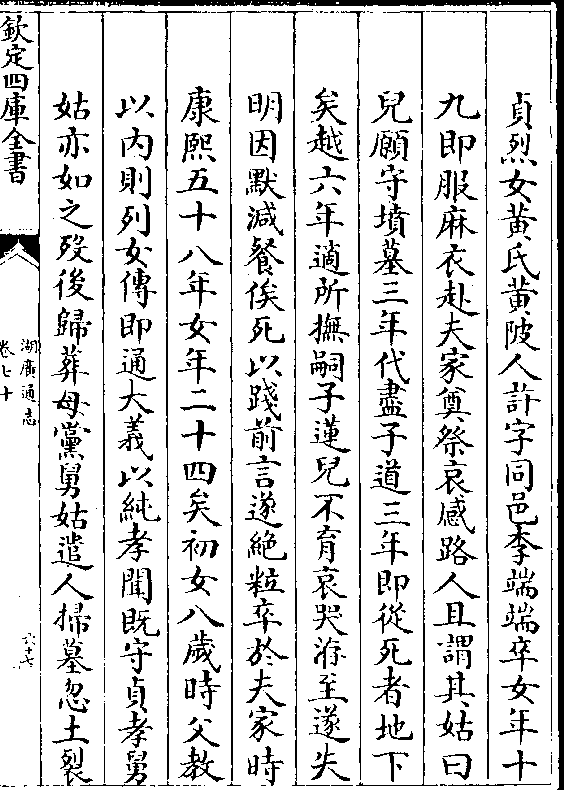 貞烈女黄氏黄陂人許字同邑李端端卒女年十
九即服麻衣赴夫家奠祭哀感路人且謂其姑曰
兒願守墳墓三年代盡子道三年即從死者地下
矣越六年適所撫嗣子蓮兒不育哀哭洊至遂失
明因默減餐俟死以踐前言遂絶粒卒於夫家時
康熙五十八年女年二十四矣初女八歲時父教
以内則列女傳即通大義以純孝聞既守貞孝舅
姑亦如之歿後歸葬母黨舅姑遣人掃墓忽土裂
欽定四庫全書
湖廣通志
卷七十
六十七